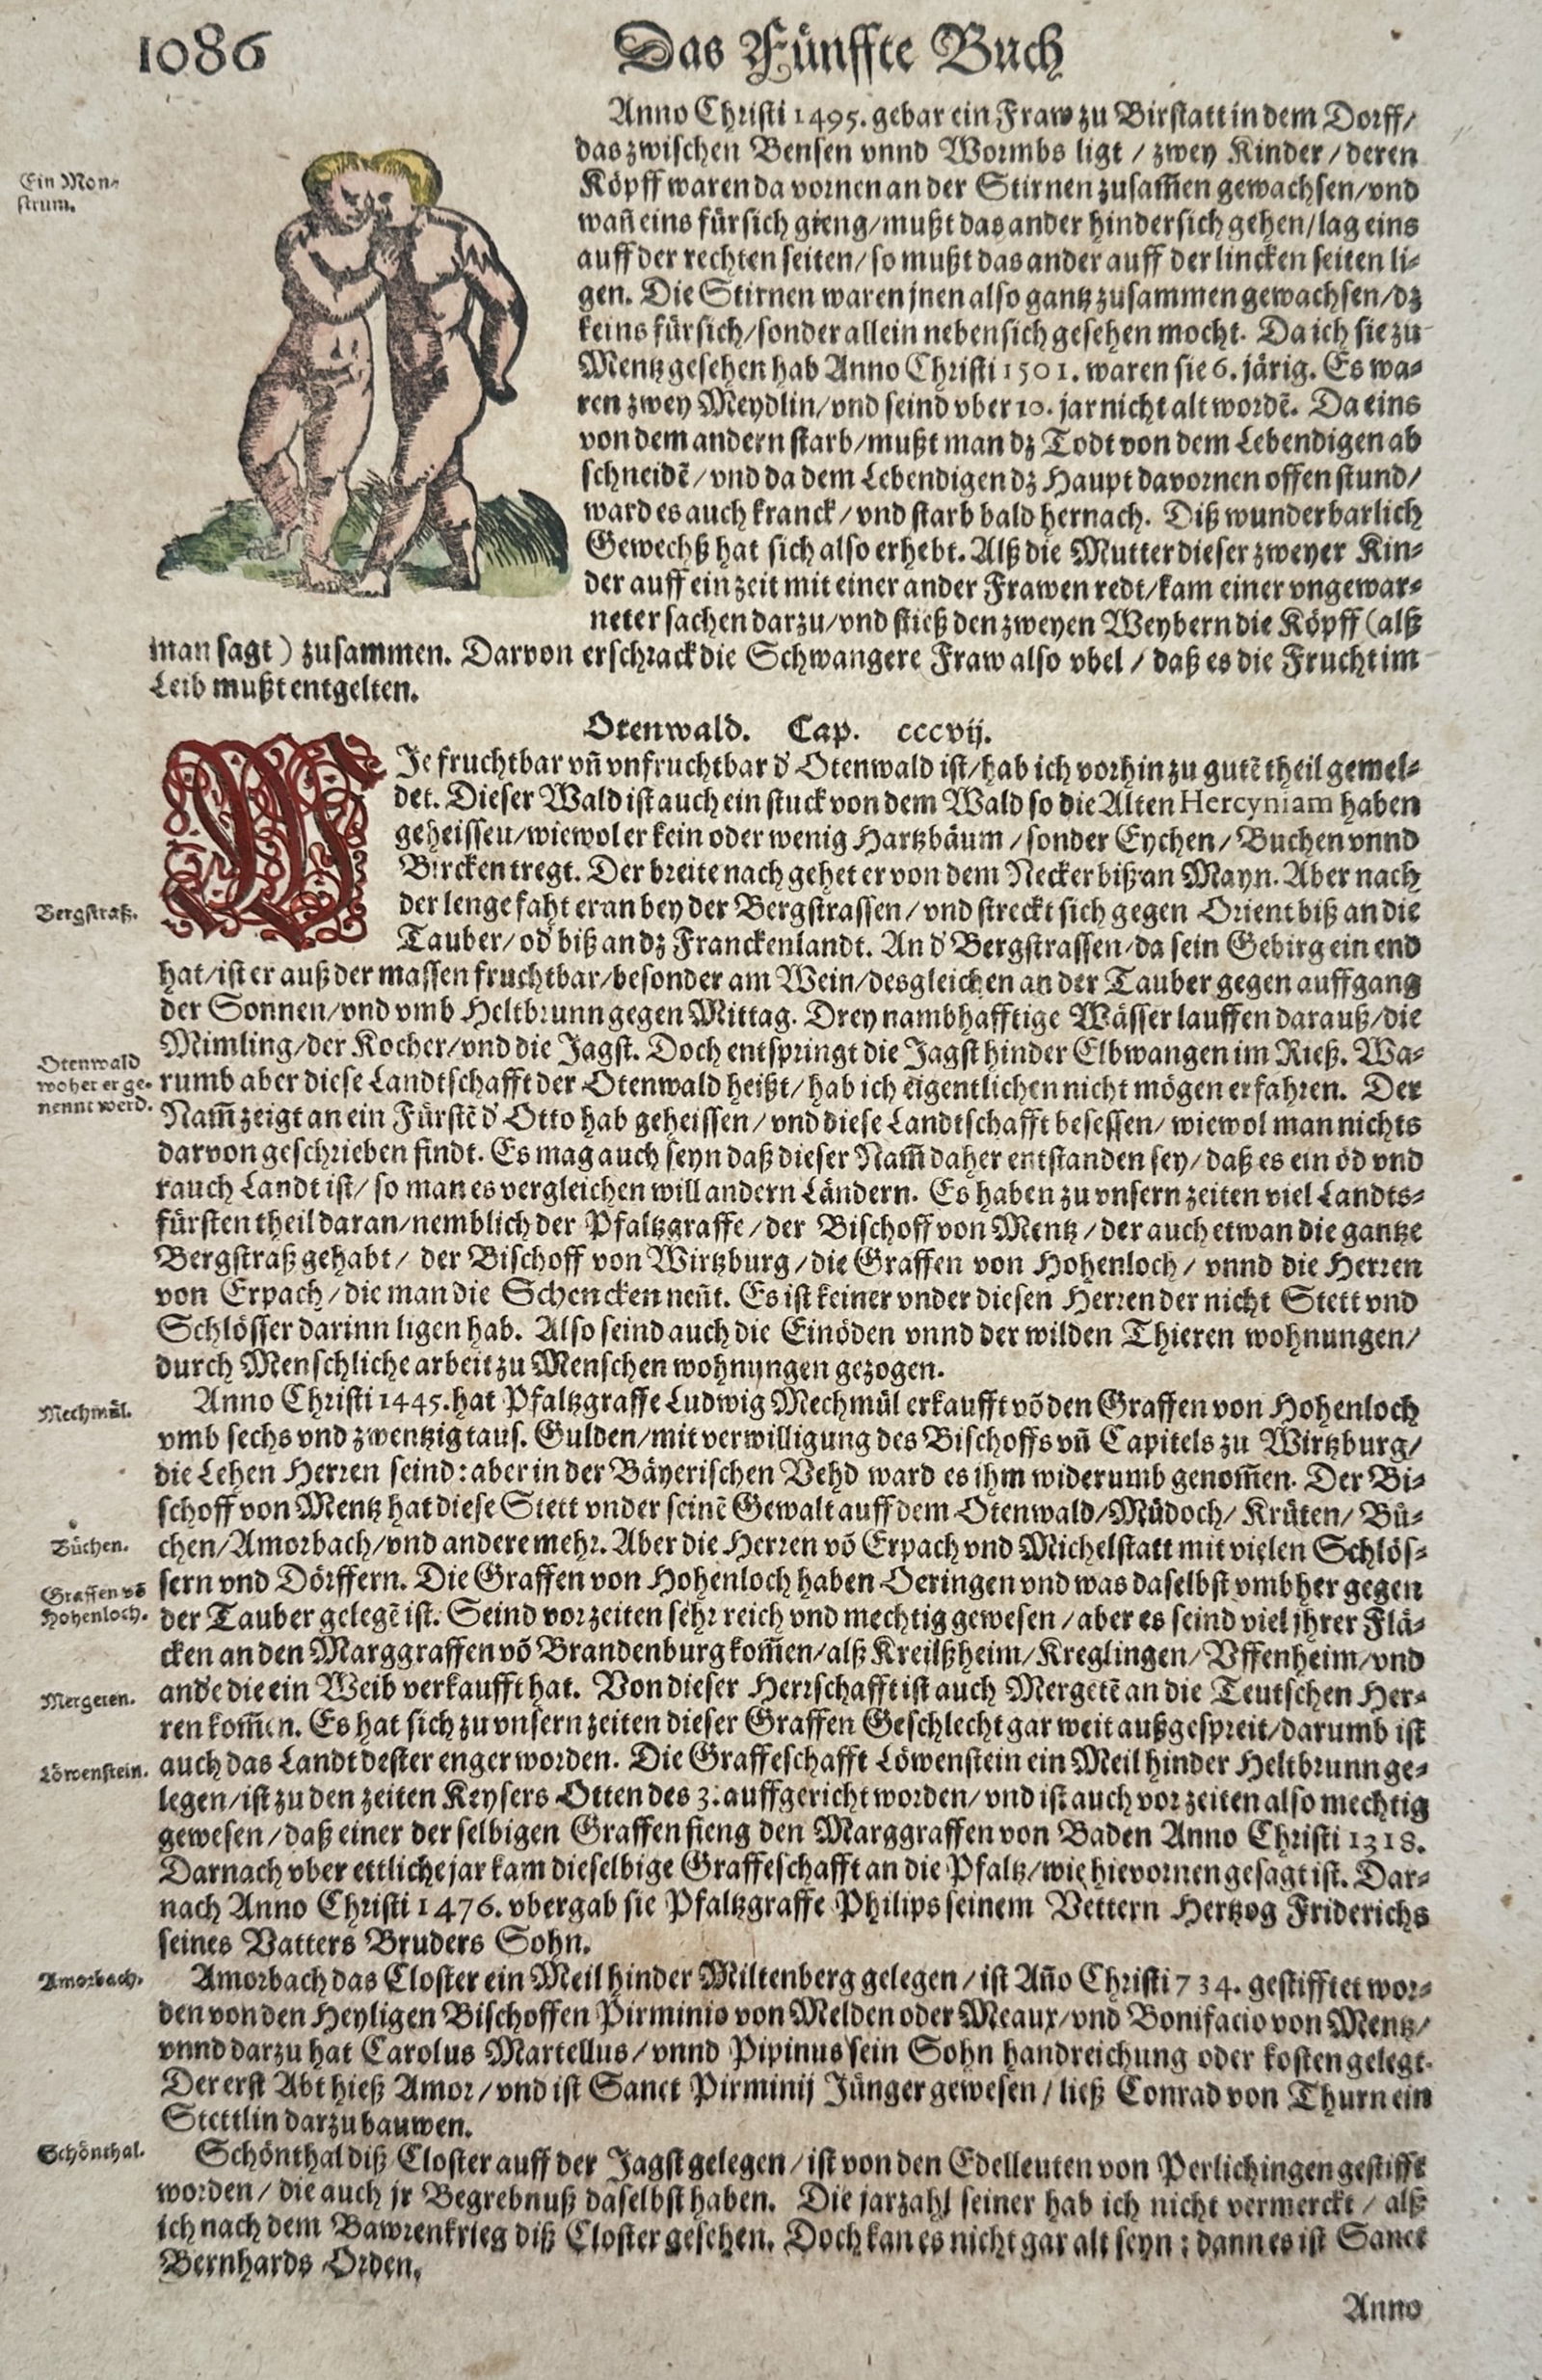 1086
Das Fünffte Buch
Anno Christi 1495. gebar ein Fraw zu Birstatt in dem Dorff/
das zwischen Bensen vnnd Wormbs ligt / zwey Kinder / deren
Ein Mon-
strum.
Köpff waren da vornen an der Stirnen zusam̃en gewachsen/vnd
wañ eins für sich gieng/mußt das ander hindersich gehen/lag eins
auff der rechten seiten/so mußt das ander auff der lincken seiten li-
gen. Die Stirnen waren jnen also gantz zusammen gewachsen/dz
keins für sich/sonder allein neben sich gesehen mocht. Da ich sie zu
Mentz gesehen hab Anno Christi 1501. waren sie 6. järig. Es wa-
ren zwey Meydlin/vnd seind vber 10. jar nicht alt wordẽ. Da eins
von dem andern starb/mußt man dz Todt von dem Lebendigen ab
schneidẽ/vnd da dem Lebendigen dz Haupt davornen offen stund/
ward es auch kranck/vnd starb bald hernach. Diß wunderbarlich
Gewechß hat sich also erhebt. Alß die Mutter dieser zweyer Kin-
der auff ein zeit mit einer ander Frawen redt/kam einer vngewar-
neter sachen darzu/vnd stieß den zweyen Weybern die Köpff (alß
man sagt) zusammen. Darvon erschrack die Schwangere Fraw also vbel / daß es die Frucht im
Leib mußt entgelten.
Otenwald. Cap. cccvij.
WJe fruchtbar vñ vnfruchtbar d' Otenwald ist/hab ich vorhin zu gutẽ theil gemel-
det. Dieser Wald ist auch ein stuck von dem Wald so die Alten Hercyniam haben
geheissen/wiewol er kein oder wenig Hartzbäum / sonder Eychen/ Buchen vnnd
Bircken tregt. Der breite nach gehet er von dem Necker biß an Mayn. Aber nach
Bergstraß.
der lenge faht er an bey der Bergstrassen/vnd streckt sich gegen Orient biß an die
Tauber/ od' biß an dz Franckenlandt. An d' Bergstrassen/da sein Gebirg ein end
hat/ist er auß der massen fruchtbar/besonder am Wein/desgleichen an der Tauber gegen auffgang
der Sonnen/vnd vmb Heltbrunn gegen Mittag. Drey nambhafftige Wässer lauffen darauß/die
Mimling/der Kocher/vnd die Jagst. Doch entspringt die Jagst hinder Elbwangen im Rieß. Wa-
Otenwald
woher er ge-
nennt werd.
rumb aber diese Landtschafft der Otenwald heißt/ hab ich eigentlichen nicht mögen erfahren. Der
Nam̃ zeigt an ein Fürstẽ d' Otto hab geheissen/ vnd diese Landtschafft besessen/ wiewol man nichts
darvon geschrieben findt. Es mag auch seyn daß dieser Nam̃ daher entstanden sey/ daß es ein öd vnd
rauch Landt ist/ so man es vergleichen will andern Ländern. Es haben zu vnsern zeiten viel Landts-
fürsten theil daran/nemblich der Pfaltzgraffe/der Bischoff von Mentz/der auch etwan die gantze
Bergstraß gehabt/ der Bischoff von Wirtzburg/die Graffen von Hohenloch/ vnnd die Herren
von Erpach/die man die Schencken neñt. Es ist keiner vnder diesen Herren der nicht Stett vnd
Schlösser darinn ligen hab. Also seind auch die Einöden vnnd der wilden Thieren wohnungen/
durch Menschliche arbeit zu Menschen wohnungen gezogen.
Mechmül.
Anno Christi 1445. hat Pfaltzgraffe Ludwig Mechmül erkaufft võ den Graffen von Hohenloch
vmb sechs vnd zwentzig taus. Gulden/mit verwilligung des Bischoffs vñ Capitels zu Wirtzburg/
die Lehen Herren seind: aber in der Bäyerischen Vehd ward es ihm widerumb genom̃en. Der Bi-
schoff von Mentz hat diese Stett vnder seinẽ Gewalt auff dem Otenwald/Müdoch/ Krüten/ Bü-
Büchen.
chen/Amorbach/vnd andere mehr. Aber die Herren võ Erpach vnd Michelstatt mit vielen Schlös-
Graffen võ
Hohenloch.
sern vnd Dörffern. Die Graffen von Hohenloch haben Oeringen vnd was daselbst vmbher gegen
der Tauber gelegẽ ist. Seind vor zeiten sehr reich vnd mechtig gewesen/aber es seind viel jhrer Flä-
cken an den Marggraffen võ Brandenburg kom̃en/alß Kreilßheim/Kreglingen/Vffenheim/vnd
Mergeten.
and'e die ein Weib verkaufft hat. Von dieser Herrschafft ist auch Mergetẽ an die Teutschen Her-
ren kom̃en. Es hat sich zu vnsern zeiten dieser Graffen Geschlecht gar weit außgespreit/darumb ist
Löwenstein.
auch das Landt dester enger worden. Die Graffeschafft Löwenstein ein Meil hinder Heltbrunn ge-
legen/ist zu den zeiten Keysers Otten des 3. auffgericht worden/vnd ist auch vor zeiten also mechtig
gewesen/daß einer derselbigen Graffen fieng den Marggraffen von Baden Anno Christi 1318.
Darnach vber ettliche jar kam dieselbige Graffeschafft an die Pfaltz/wie hievornen gesagt ist. Dar-
nach Anno Christi 1476. vbergab sie Pfaltzgraffe Philips seinem Vettern Hertzog Friderichs
seines Vatters Bruders Sohn.
Amorbach.
Amorbach das Closter ein Meil hinder Miltenberg gelegen/ist Añο Christi 734. gestifftet wor-
den von den Heyligen Bischoffen Pirminio von Melden oder Meaux/vnd Bonifacio von Mentz/
vnnd darzu hat Carolus Martellus/vnnd Pipinus sein Sohn handreichung oder kosten gelegt.
Der erst Abt hieß Amor/vnd ist Sanct Pirminij Jünger gewesen/ließ Conrad von Thurn ein
Stettlin darzu bauwen.
Schönthal.
Schönthal diß Closter auff der Jagst gelegen/ist von den Edelleuten von Perlichingen gestifft
worden/die auch jr Begrebnuß daselbst haben. Die jarzahl seiner hab ich nicht vermerckt/alß
ich nach dem Bawrenkrieg diß Closter gesehen. Doch kan es nicht gar alt seyn: dann es ist Sanct
Bernhards Orden.
Anno